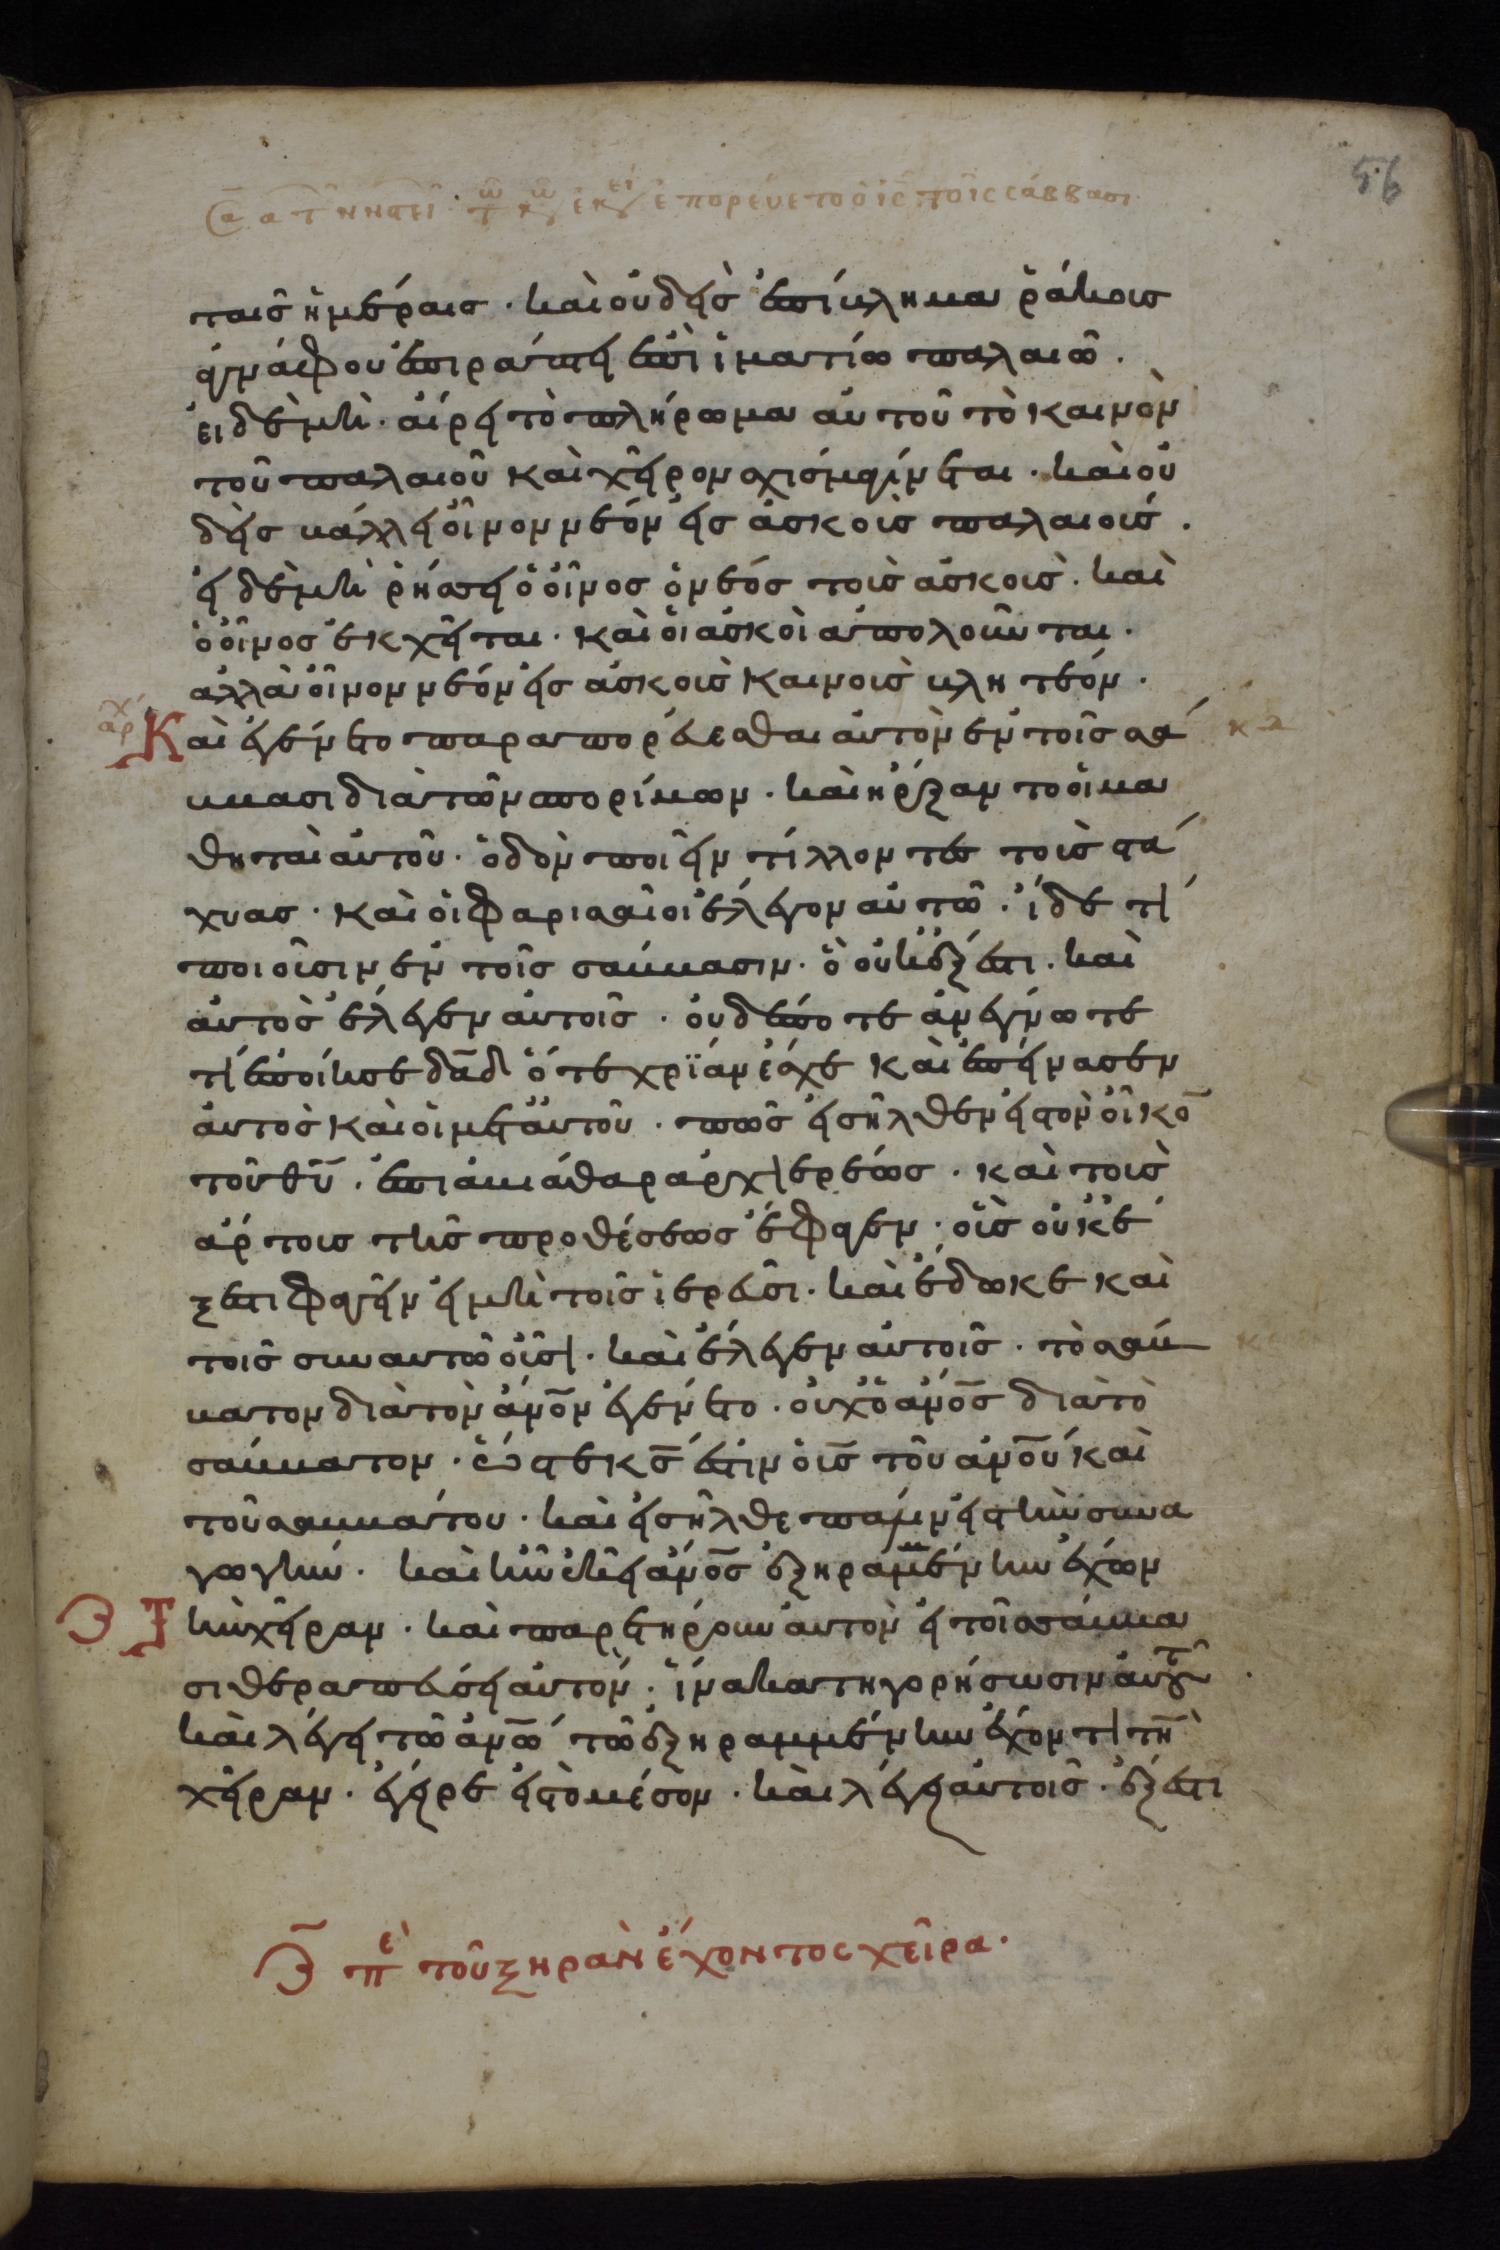 56
ἐπορεύετο ὁ ις τοῖς σάββασι
ταις ἡμέραις · καὶ οὐδεὶς ἐπίβλημα ῥάκους
ἀγνάφου ἐπιράπτει ἐπὶ ἱματίω παλαιῶ ·
εἰ δὲ μὴ · αἴρει τὸ πλήρωμα αὐτοῦ τὸ καινὸν
τοῦ παλαιοῦ καὶ χεῖρον σχίσμα γίνεται · καὶ οὐ
δεὶς βάλλει οἶνον νέον εἰς ἀσκοὺς παλαιούς ·
εἰ δὲ μὴ ῥήσσει ὁ οἶνος ὁ νέος τοὺς ἀσκοὺς · καὶ
ὁ οἶνος ἐκχεῖται · καὶ οἱ ἀσκοὶ ἀπολοῦνται ·
ἀλλὰ οἶνον νέον εἰς ἀσκοὺς καινοὺς βλητέον ·
Καὶ ἐγένετο παραπορεύεσθαι αὐτὸν ἐν τοῖς σά
ββασι διὰ τῶν σπορίμων · καὶ ἤρξαντο οἱ μα
θηταὶ αὐτοῦ · ὁδὸν ποιεῖν τίλλοντες τοὺς στά
χυας · καὶ οἱ φαρισαῖοι ἔλεγον αὐτῶ · ἴδε τί
ποιοῦσιν ἐν τοῖς σάββασιν · ὃ οὐκ ἔξεστι · καὶ
αὐτὸς ἔλεγεν αὐτοῖς · οὐδέποτε ἀνέγνωτε
τί ἐποίησε δᾱδ ὅτε χρείαν ἔσχε καὶ ἐπείνασεν
αὐτὸς καὶ οἱ μετ αὐτοῦ · πῶς εἰσῆλθεν εἰς τὸν οἶκο̅
τοῦ θυ̅ · ἐπὶ ἀβιάθαρ ἀρχιερέως · καὶ τοὺς
ἄρτους τῆς προθέσεως ἔφαγεν · οὓς οὐκ ἔ
ξεστι φαγεῖν εἰ μὴ τοῖς ἱερεῦσι · καὶ ἔδωκε καὶ
τοῖς συν αυτῶ οὖσι · καὶ ἔλεγεν αὐτοῖς · τὸ σάβ
βατον διὰ τὸν ἄνο̅ν ἐγένετο · οὐχ ὁ ἄνο̅ς διὰ τὸ
σάββατον · ὥστε κς̅ ἐστιν ὁ υς̅ τοῦ ανο̅υ καὶ
τοῦ σαββάτου · καὶ εἰσῆλθε πάλιν εἰς τὴν συνα
γωγήν · καὶ ἦν ἐκεῖ ἄνο̅ς ἐξηραμμένην ἔχων
τὴν χεῖραν · καὶ παρετήρουν αὐτὸν εἰ τοῖς σάββα
σι θεραπεύσει αὐτόν · ἵνα κατηγορήσωσιν αὐτοῦ ·
καὶ λέγει τῶ ἀνω̅ τῶ ἐξηραμμένην ἔχοντι τὴ̅
χεῖραν · ἔγειρε εἰς τὸ μέσον · καὶ λέγει αὐτοῖς · ἔξεστι
πε τοῦ ξηρὰν ἔχοντος χεῖρα ·